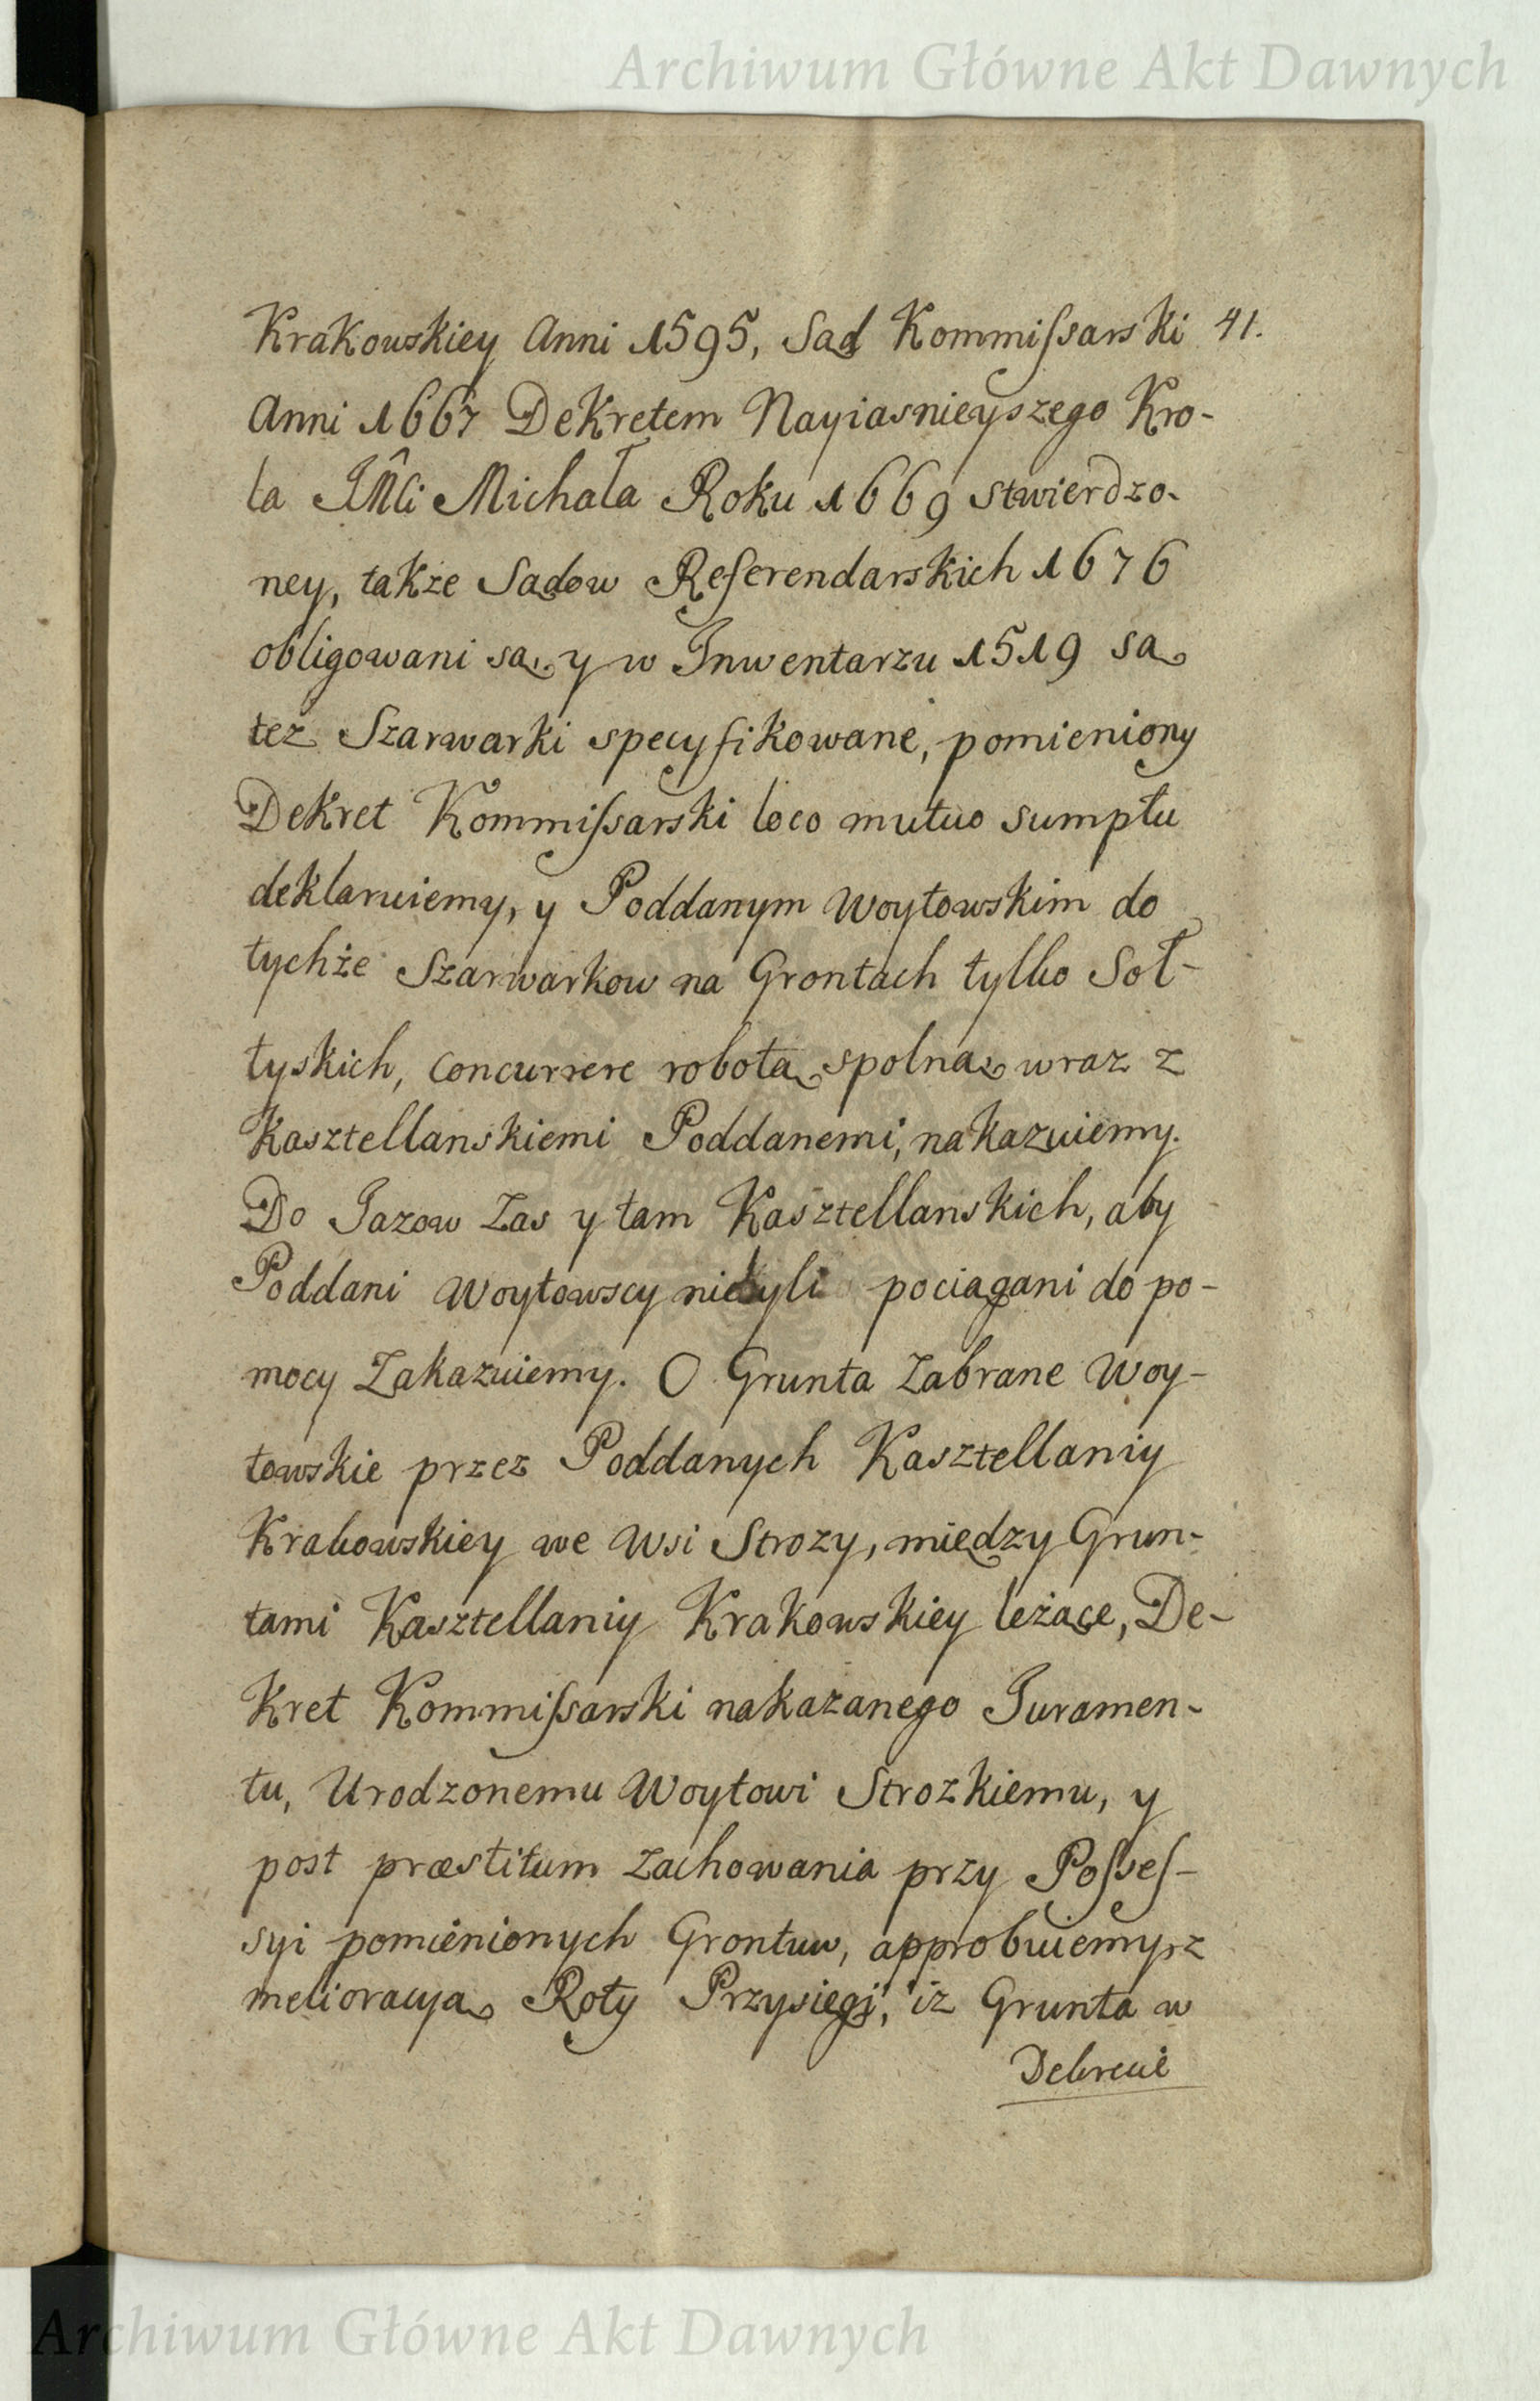 Archiwum Główne Akt Dawnych
Krakowskiey Anni 1595, Sąd Kommiſsarski 41.
Anni 1667 Dekretem Nayiasnieyszego Kro-
la JMĉi Michała Roku 1669 stwierdzo-
ney, takze Sądow Referendarskich 1676
obligowani są, y w Inwentarzu 1519 są
tez Szarwarki specyfikowane, pomieniony
Dekret Kommiſsarski loco mutuo sumptu
deklaruiemy, y Poddanym Woytowskim do
tychże Szarwarkow na Grontach tylko Soł-
tyskich, concurrere robotą spolną wraz z
Kasztellanskiemi Poddanemi, nakazuiemy.
Do Jazow Zas y tam Kasztellanskich, aby
Poddani Woytowscy niebyli pociągani do po-
mocy Zakazuiemy. O Grunta Zabrane Woy-
towskie przez Poddanych Kasztellaniy
Krakowskiey we Wsi Strozy, między Grun-
tami Kasztellaniy Krakowskiey leżące, De-
kret Kommiſsarski nakazanego Juramen-
tu, Urodzonemu Woytowi Strozkiemu, y
post præstitum Zachowania przy Poſseſ-
syi pomienionych Grontuw, approbuiemy, z
melioracyą Roty Przysięgi, iz Grunta w
Dekrecie
Archiwum Główne Akt Dawnych